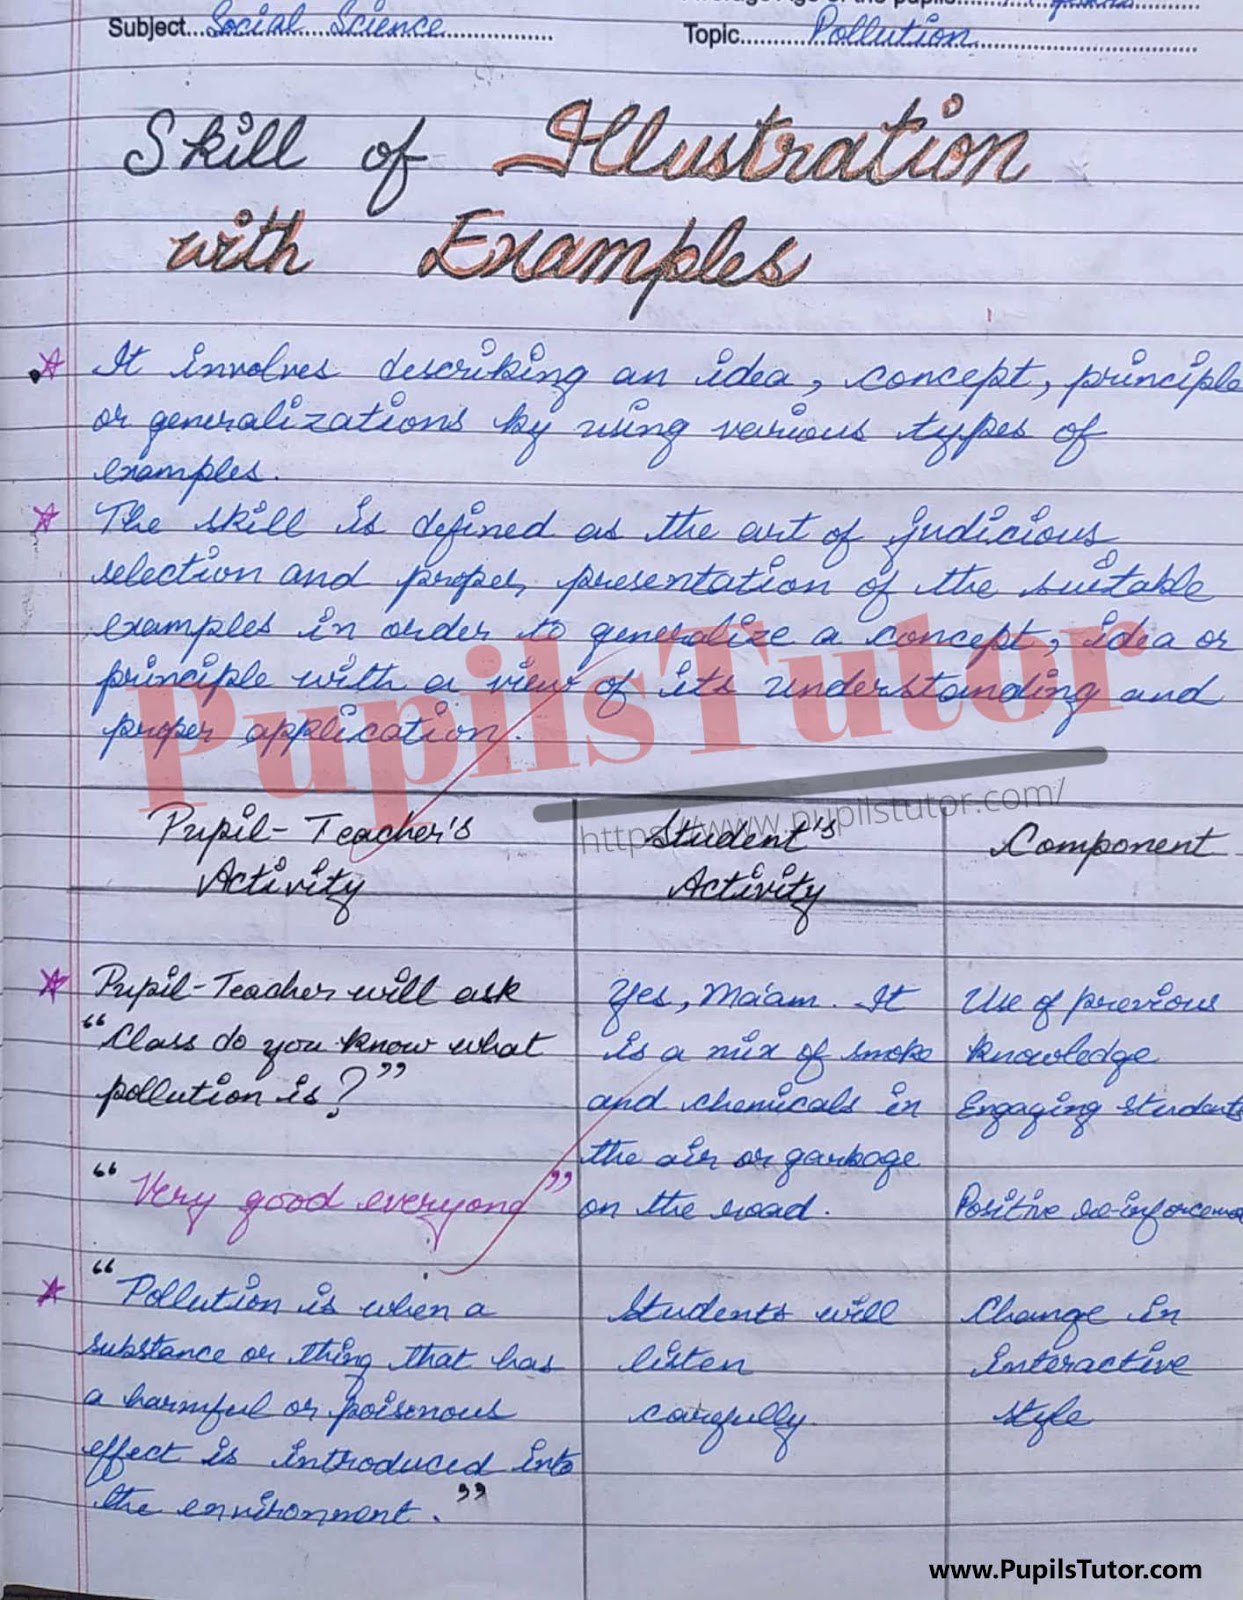 Average Age of the pupils
Subject...Social Science...
Topic...Pollution...
Skill of Illustration
with Examples
It involves describing an idea, concept, principle
or generalizations by using various types of
examples.
The skill is defined as the art of judicious
selection and proper presentation of the suitable
examples in order to generalize a concept, idea or
principle with a view of its understanding and
proper application.
PupilsTutor
https://www.pupilstutor.com/
Pupil-Teacher's
Activity
Student's
Activity
Component
Pupil-Teacher will ask
"Class do you know what
pollution is?"
"Very good everyone"
Yes, Ma'am. It
is a mix of smoke
and chemicals in
the air or garbage
on the road.
Use of previous
knowledge
Engaging Students
Positive re-inforceme
"Pollution is when a
substance or thing that has
a harmful or poisonous
effect is introduced into
the environment."
Students will
listen
carefully.
Change in
interactive
style
www.PupilsTutor.com